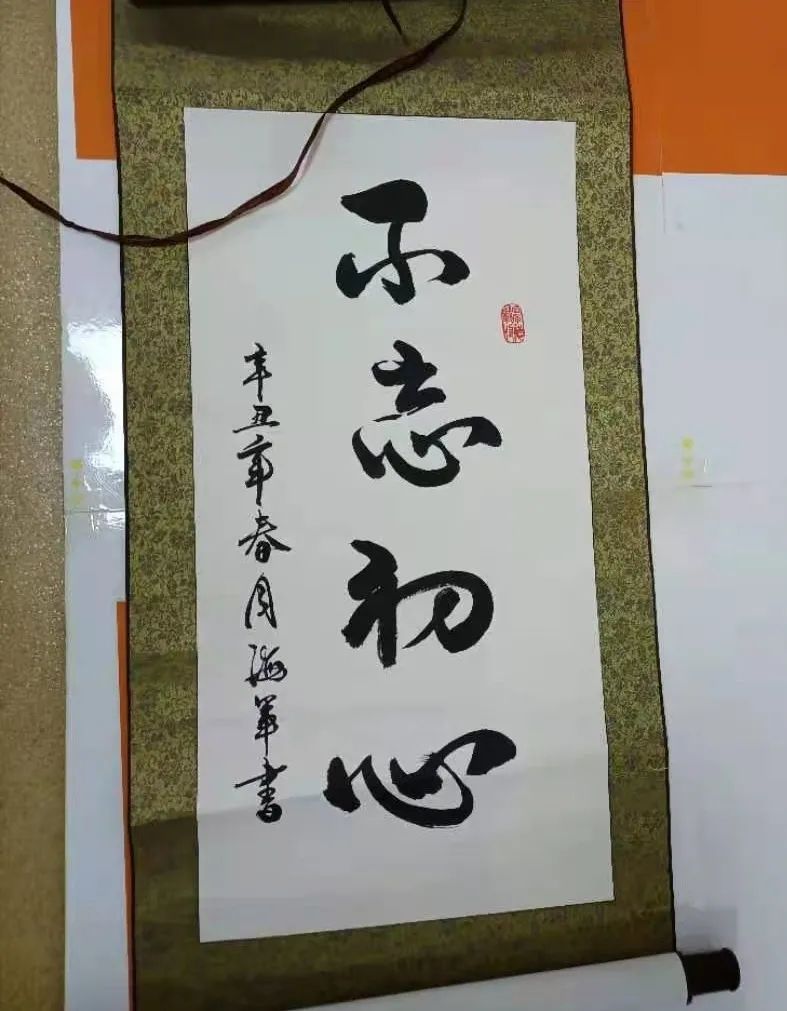 不忘初心
辛丑年春月海軍書